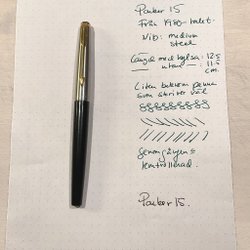 Parker 15
Från 1980-talet.
Nib: medium
steel
Längd med hylsa: 12.5
— utan — : 11.5
cm.
Liten bekväm penna
som skriver väl
Genomgången &
kontrollerad.
Parker 15.